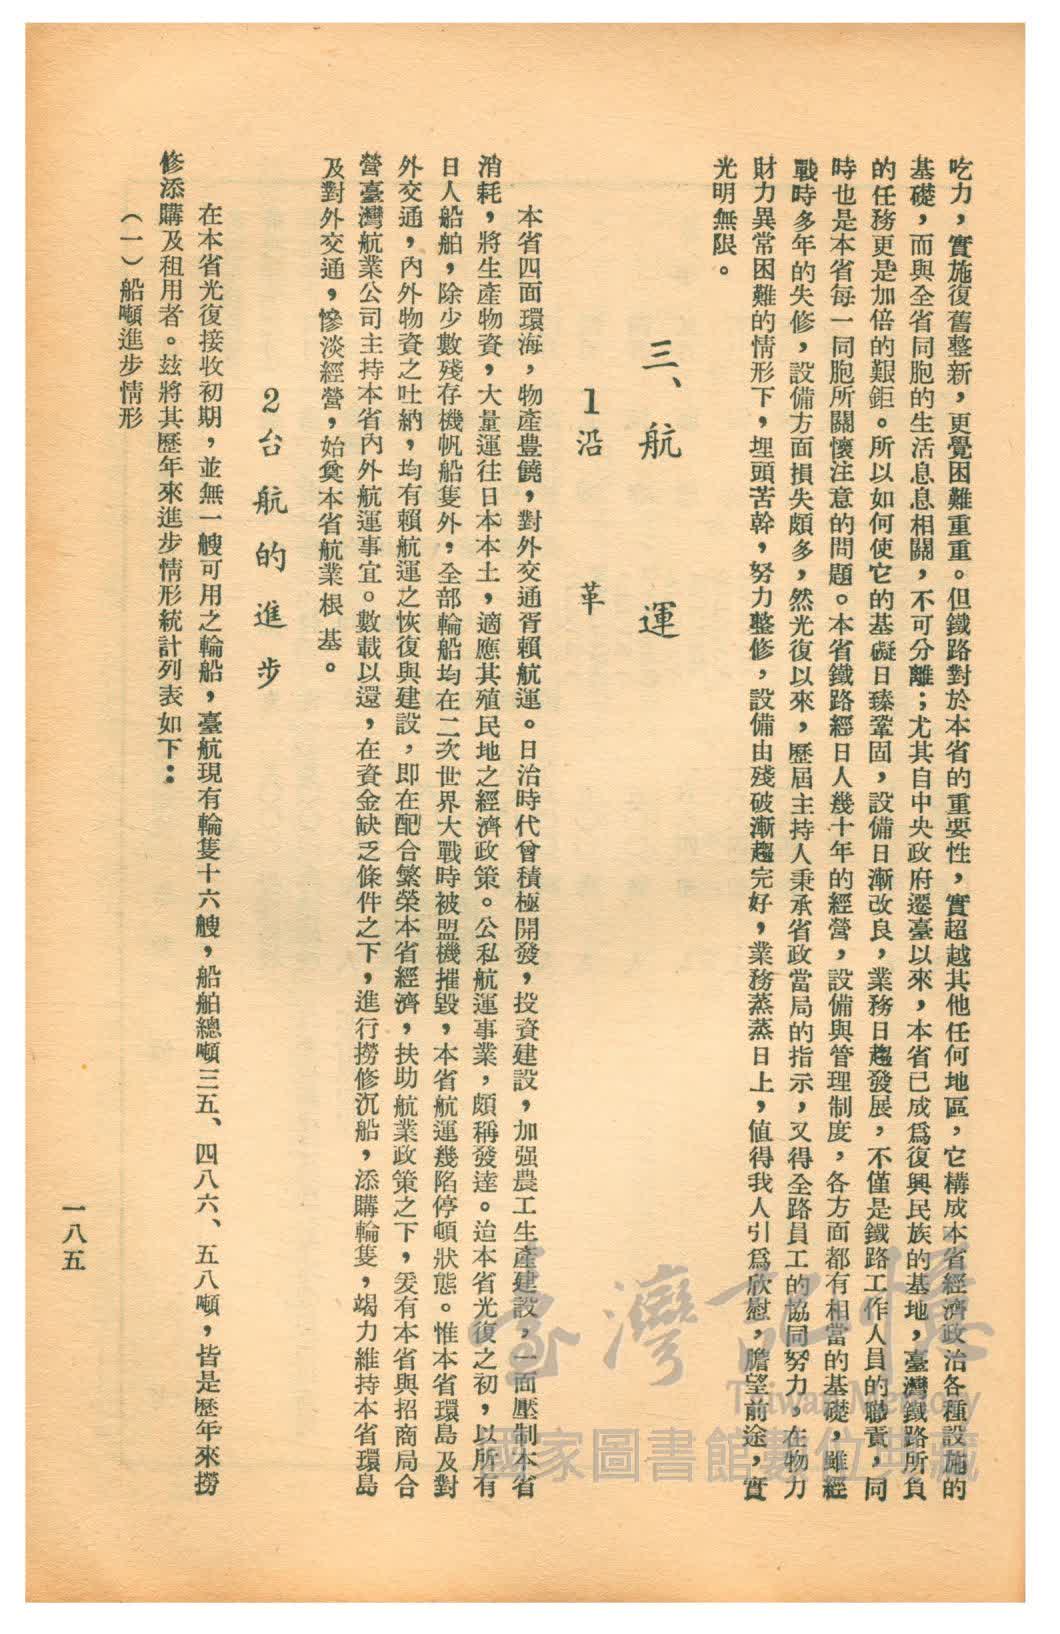 吃力，實施復舊整新，更覺困難重重。但鐵路對於本省的重要性，實超越其他任何地區，它構成本省經濟政治各種設施的
基礎，而與全省同胞的生活息息相關，不可分離；尤其自中央政府遷臺以來，本省已成爲復興民族的基地，臺灣鐵路所負
的任務更是加倍的艱鉅。所以如何使它的基礎日臻鞏固，設備日漸改良，業務日趨發展，不僅是鐵路工作人員的職責，同
時也是本省每一同胞所關懷注意的問題。本省鐵路經日人幾十年的經營，設備與管理制度，各方面都有相當的基礎，雖經
戰時多年的失修，設備方面損失頗多，然光復以來，歷屆主持人秉承省政當局的指示，又得全路員工的協同努力，在物力
財力異常困難的情形下，埋頭苦幹，努力整修，設備由殘破漸趨完好，業務蒸蒸日上，値得我人引爲欣慰，瞻望前途，實
光明無限。
三、航運
1沿革
本省四面環海，物產豊饒，對外交通胥賴航運。日治時代曾積極開發，投資建設，加强農工生產建設，一面壓制本省
消耗，將生產物資，大量運往日本本土，適應其殖民地之經濟政策。公私航運事業，頗稱發達。迨本省光復之初，以所有
日人船舶，除少數殘存機帆船隻外，全部輪船均在二次世界大戰時被盟機摧毀，本省航運幾陷停頓狀態。惟本省環島及對
外交通，內外物資之吐納，均有賴航運之恢復與建設，即在配合繁榮本省經濟，扶助航業政策之下，爰有本省與招商局合
營臺灣航業公司主持本省內外航運事宜。數載以還，在資金缺乏條件之下，進行撈修沉船，添購輪隻，竭力維持本省環島
及對外交通，慘淡經營，始奠本省航業根基。
2台航的進步
在本省光復接收初期，並無一艘可用之輪船，臺航現有輪隻十六艘，船舶總噸三五、四八六、五八噸，皆是歷年來撈
修添購及租用者。玆將其歷年來進步情形統計列表如下：
（一）船噸進步情形
一八五
臺灣記憶
Taiwan Memory
國家圖書館數位典藏